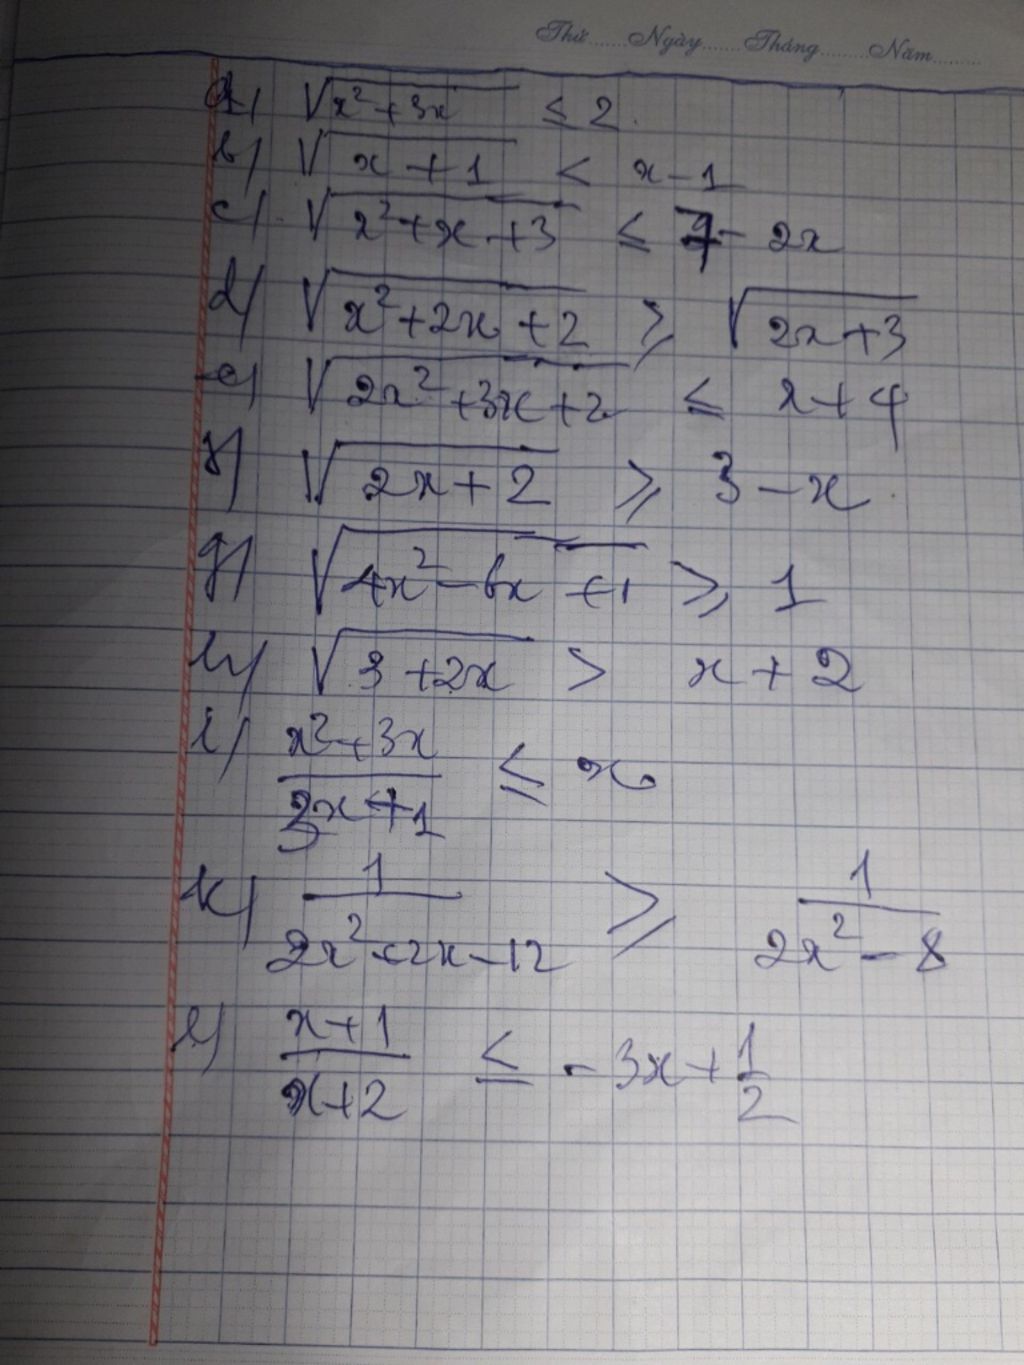 Thứ Ngày Tháng Năm
a) √(x²+3x) ≤ 2
b) √(x+1) < x-1
c) √(x²+x+3) ≤ 7-2x
d) √(x²+2x+2) ≥ √(2x+3)
e) √(2x²+3x+2) ≤ x+4
f) √(2x+2) ≥ 3-x
g) √(4x²-6x+1) ≥ 1
h) √(3+2x) > x+2
i) (x²+3x)/(3x+1) ≤ x
k) 1/(2x²+2x-12) ≥ 1/(2x²-8)
l) (x+1)/(x+2) ≤ -3x+1/2